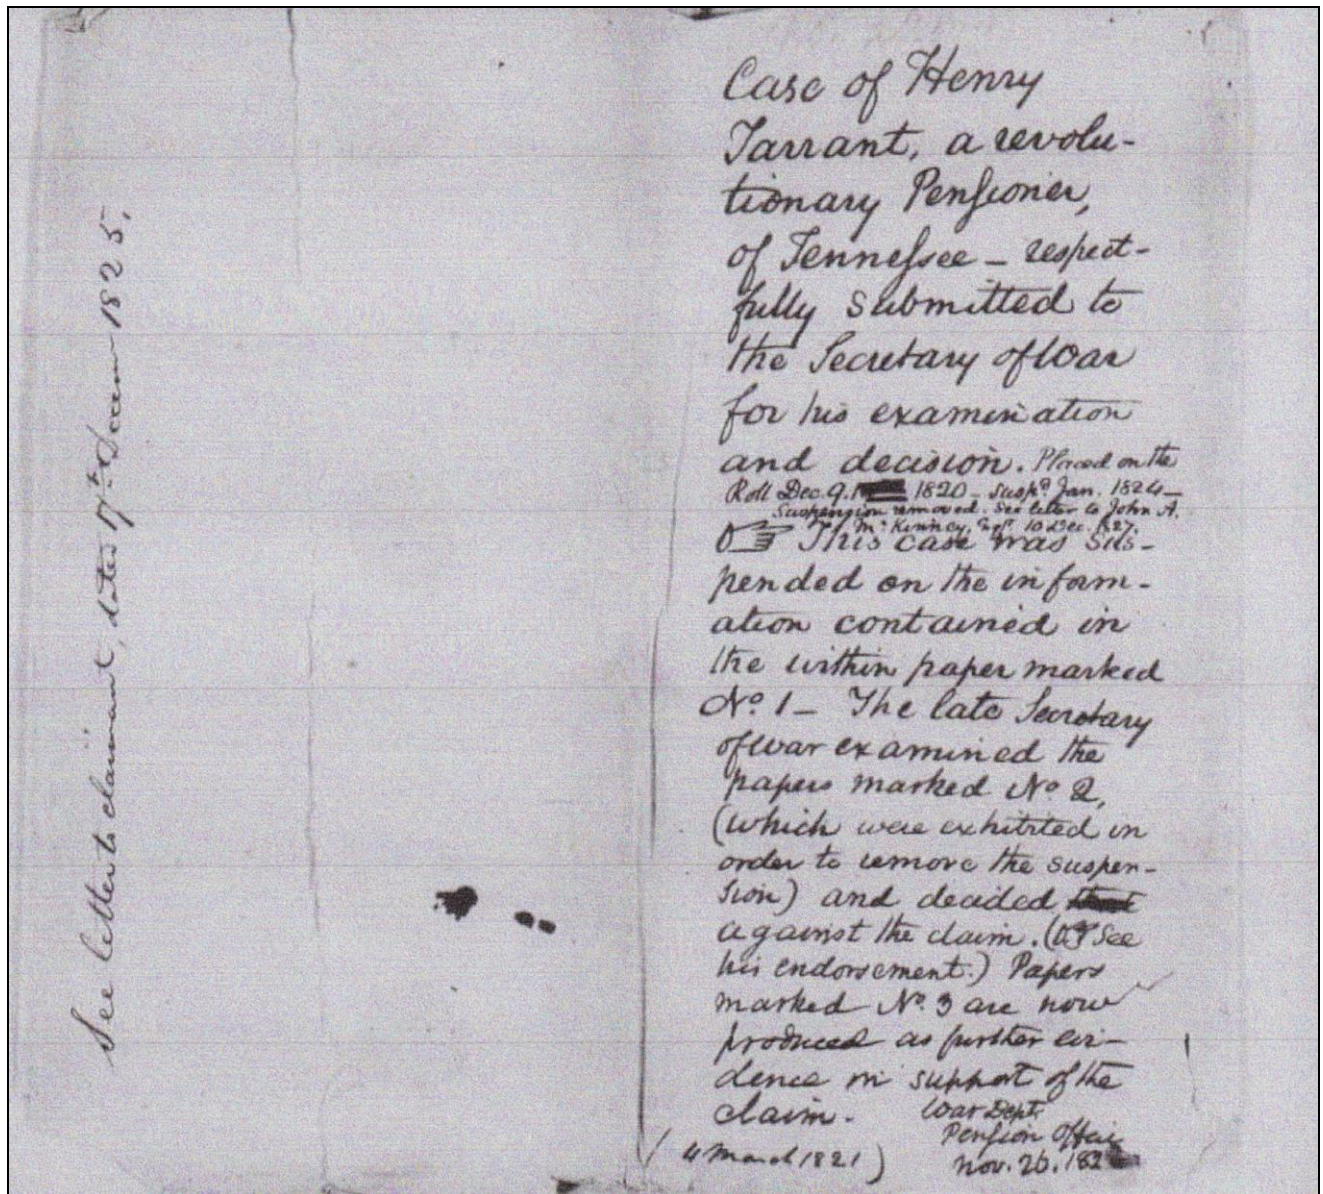 See letter to claimant, dated 17th Decem 1825.
Case of Henry
Tarrant, a revolu-
tionary Penſioner,
of Tenneſsee – respect-
fully submitted to
the Secretary of War
for his examination
and decision. Placed on the
Roll Dec. 9. 1820 – suspd. Jan. 1824 –
Suspension removed. See letter to John A.
Mc Kinney, 10 Dec. 1827.
☞ This case was sus-
pended on the inform-
ation contained in
the within paper marked
No. 1 – The late Secretary
of war examined the
papers marked No. 2,
(which were exhibited in
order to remove the suspen-
sion) and decided
against the claim. (☞ See
his endorsement.) Papers
marked No. 3 are now
produced as further evi-
dence in support of the
claim.
War Dept.
Penſion Office
Nov. 26. 182
(4 March 1821)